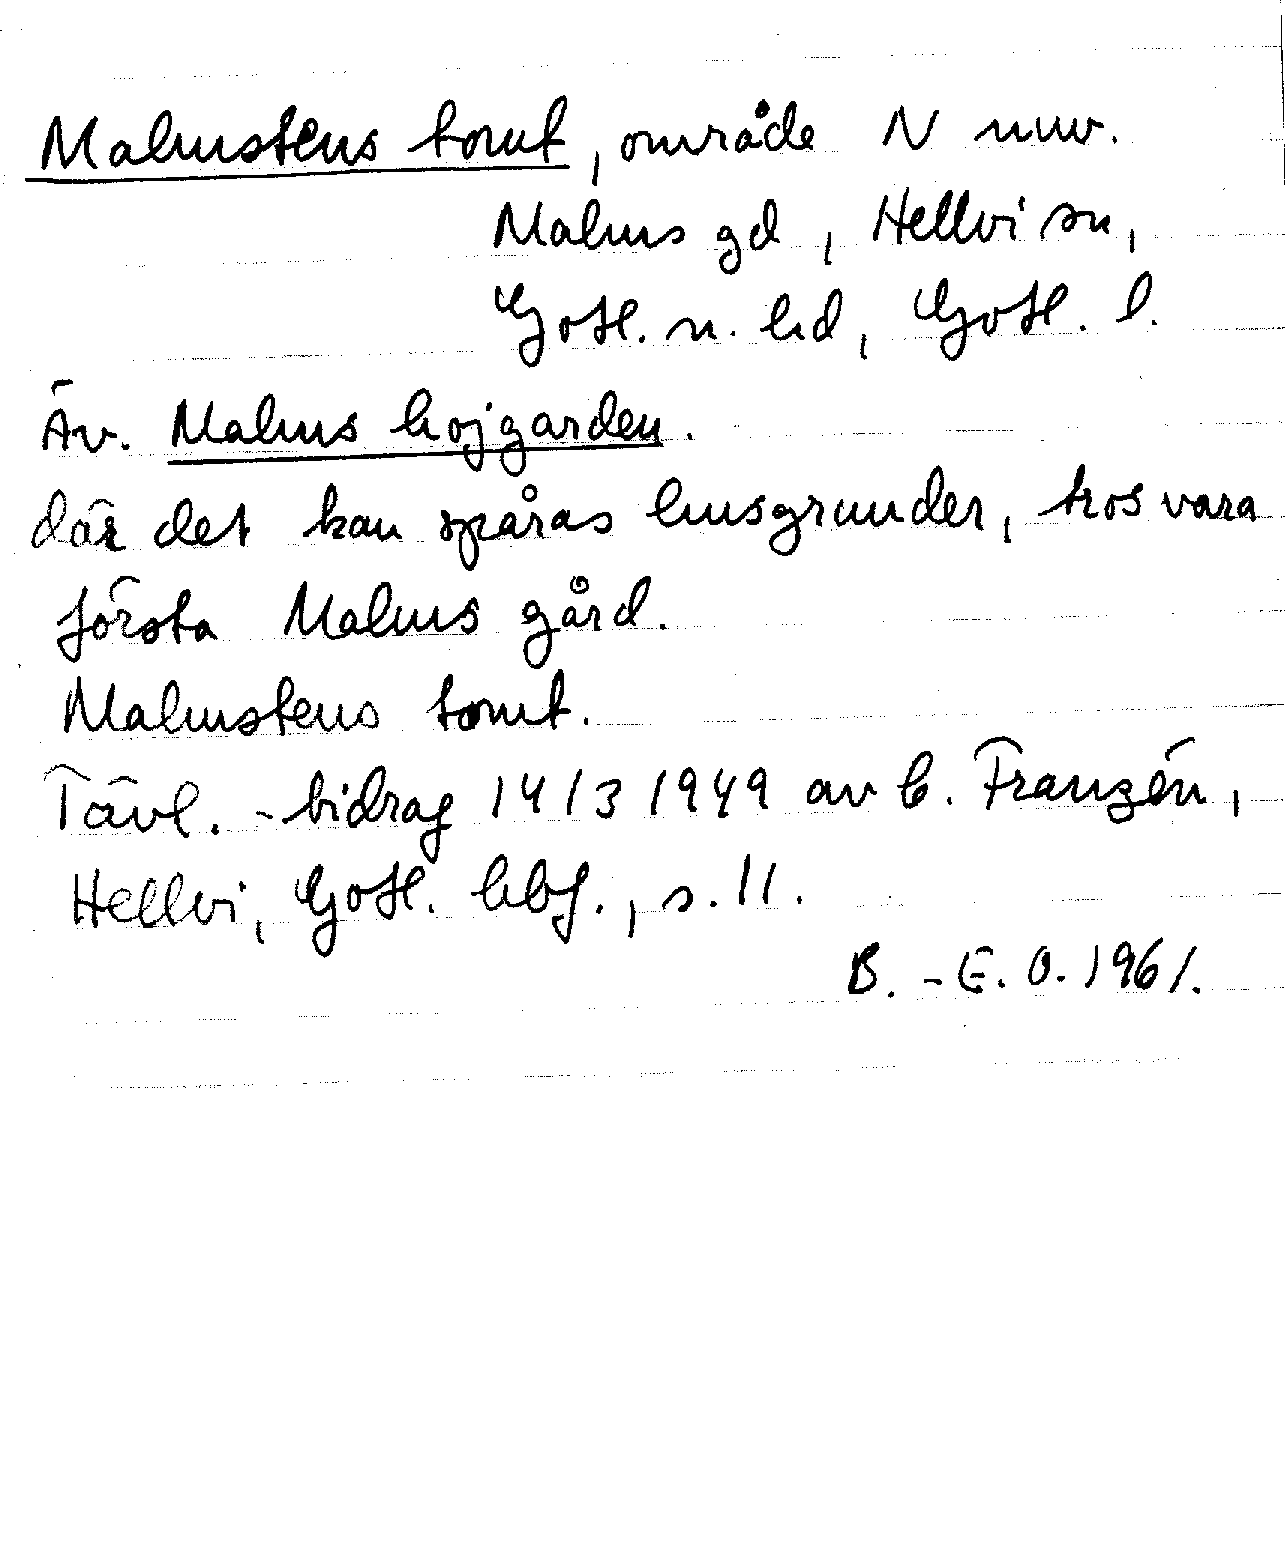 Malmstens tomt, område N nuv.
Malms gd, Hellvi sn,
Gotl. n. hd, Gotl. l.
Äv. Malms hojgarden.
där det kan spåras husgrunder, tros vara
första Malms gård.
Malmstens tomt.
Tävl.-bidrag 14/3 1949 av C. Franzén,
Hellvi, Gotl. hbf., s. 11.
B.-E. O. 1961.